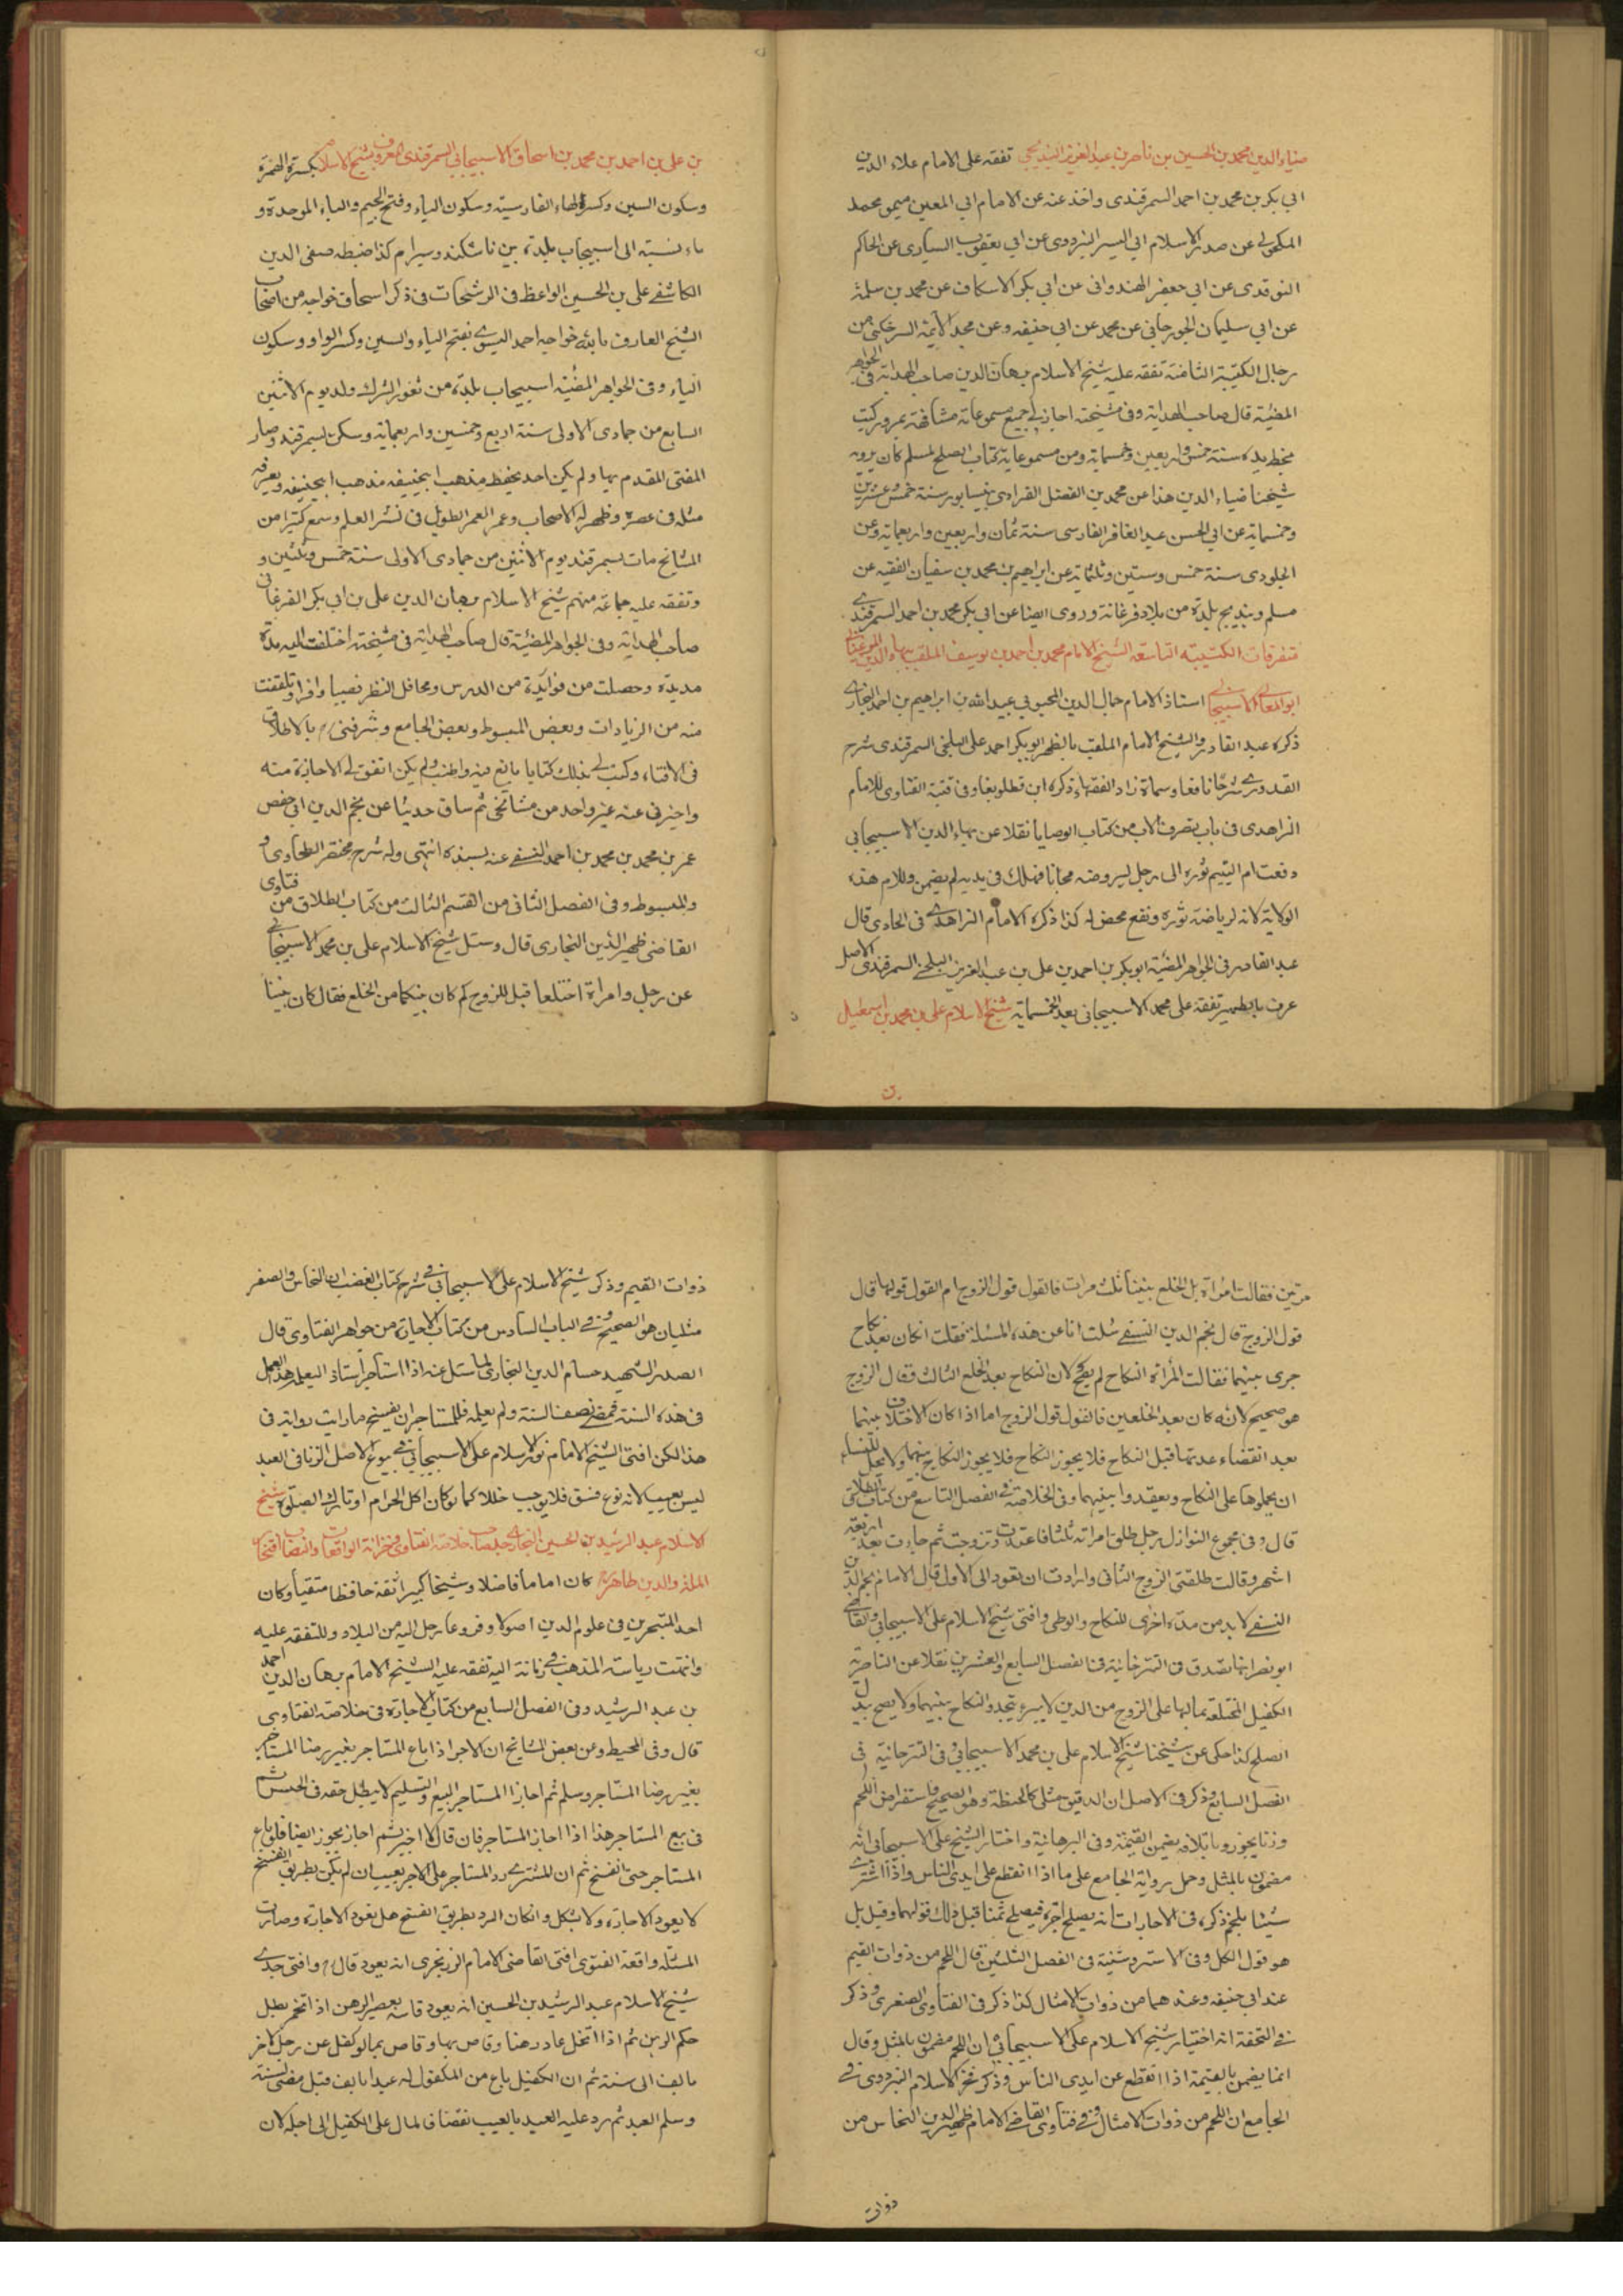 ضياء الدين محمد بن الحسين بن ناصر بن عبد العزيز البنديجى تفقه على الامام علاء الدين
ابى بكر بن محمد بن احمد السمرقندى واخذ عنه عن الامام ابى المعين ميمون محمد
المكحولى عن صدر الاسلام ابى اليسر البزدوى عن ابى يعقوب السيارى عن الحاكم
النوقدى عن ابى جعفر الهندوانى عن ابى بكر الاسكاف عن محمد بن سلمة
عن ابى سليمان الجوزجانى عن محمد عن ابى حنيفه وعن مجد الائمة السرخكتى من
رجال الكتيبة الثامنة تفقه عليه شيخ الاسلام برهان الدين صاحب الهداية فى الجواهر
المضيئة قال صاحب الهداية وفى مشيخته اجاز لى جميع مسموعاته مشافهة بمرو وكتب
بخط يده سنة خمس واربعين وخمسماية ومن مسموعاته كتاب الصلح لمسلم كان يرويه
شيخنا ضياء الدين هذا عن محمد بن الفضل الفراوى بنيسابور سنة خمس وعشرين
وخمسماية عن ابى الحسن عبد الغافر الفارسى سنة ثمان واربعين واربعماية وعن
الجلودى سنة خمس وستين وثلثماية عن ابراهيم بن محمد بن سفيان الفقيه عن
مسلم وبنديج بلدة من بلاد فرغانة وروى ايضا عن ابى بكر محمد بن احمد السمرقندى
متفرقات الكتيبه التاسعة الشيخ الامام محمد بن احمد بن يوسف الملقب ببهاء الدين المرغينانى
ابو المعالى الاسبيجابى استاذ الامام جمال الدين المحبوبى عبيد الله بن ابراهيم بن احمد البخارى
ذكره عبد القادر والشيخ الامام الملقب بالظهير ابو بكر احمد على البلخى السمرقندى شرح
القدورى شرحا نافعا وسماه زاد الفقهاء ذكره ابن قطلوبغا وفى قنية الفتاوى للامام
الزاهدى فى باب تصرف الاب من كتاب الوصايا نقلا عن بهاء الدين الاسبيجابى
دفعت ام اليتيم ثوره الى رجل ليروضه مجانا فهلك فى يديه لم يضمن وللام هذه
الولاية لانه لرياضة ثوره ونفع محض له كذا ذكره الامام الزاهدى فى الحاوى قال
عبد القادر فى الجواهر المضيئة ابو بكر بن احمد بن على بن عبد العزيز البلخى السمرقندى الاصل
عرف بالظهير تفقه على محمد الاسبيجابى بعد الخمسماية شيخ الاسلام على بن محمد بن اسمعيل
بن
بن على بن احمد بن محمد بن اسحاق الاسبيجابى السمرقندى المعروف بشيخ الاسلام بكسرة الهمزة
وسكون السين وكسر الهاء الفارسية وسكون الياء وفتح الجيم والباء الموحدة و
ياء نسبة الى اسبيجاب بلدة بين تاشكند وسيرام كذا ضبطه صفى الدين
الكاشفى على بن الحسين الواعظ فى الرشحات فى ذكر اسحاق خواجه من اصحاب
الشيخ العارف بالله خواجه احمد اليسوى بفتح الياء والسين وكسر الواو وسكون
الياء وفى الجواهر المضيئة اسبيجاب بلدة من ثغور الترك ولد يوم الاثنين
السابع من جمادى الاولى سنة اربع وخمسين واربعماية وسكن بسمرقند وصار
المفتى المقدم بها ولم يكن احد يحفظ مذهب ابيحنيفه مذهب ابيحنيفه ويعرفه
مثله فى عصره وظهر له الاصحاب وعمر العمر الطويل فى نشر العلم وسمع كثيرا من
المشايخ مات بسمرقند يوم الاثنين من جمادى الاولى سنة خمس وثلثين و
وتفقه عليه جماعة منهم شيخ الاسلام برهان الدين على بن ابى بكر الفرغانى
صاحب الهداية وفى الجواهر المضيئة قال صاحب الهداية فى مشيخته اختلفت اليه مدة
مديدة وحصلت من فوايده من الدرس ومحافل النظر نصيبا وافرا وتلقفت
منه من الزيادات وبعض المبسوط وبعض الجامع وشرفنى بالاطلاق
فى الافتاء وكتب لى بذلك كتابا بالغ فيه واطنب ولم يكن اتفق لى الاجازة منه
واخبرنى عنه غير واحد من مشائخى ثم ساق حديثا عن نجم الدين ابى حفص
عمر بن محمد بن محمد بن احمد النسفى عنه بسنده انتهى وله شرح مختصر الطحاوى و
والمبسوط وفى الفصل الثانى من القسم الثالث من كتاب الطلاق من فتاوى
القاضى ظهير الدين البخارى قال وسئل شيخ الاسلام على بن محمد الاسبيجابى
عن رجل وامراة اختلعا قبل للزوج كم كان بينكما من الخلع فقال كان بيننا
مرتين فقالت امراة بل الخلع بيننا ثلث مرات فالقول قول الزوج ام القول قولها قال
قول الزوج قال نجم الدين النسفى سئلت انا عن هذه المسئلة فقلت ان كان بعد نكاح
جرى بينهما فقالت المرأة النكاح لم يصح لان النكاح بعد الخلع الثالث وقال الزوج
هو صحيح لانه كان بعد الخلعين فالقول قول الزوج اما اذا كان الاختلاف بينهما
بعد انقضاء عدتها قبل النكاح فلا يجوز النكاح فلا يجوز النكاح بينهما ولا يحل للنساء
ان يحملوها على النكاح ويعقدوا بينهما وفى الخلاصة فى الفصل التاسع من كتاب الطلاق
قال وفى مجموع النوازل رجل طلق امراته ثلثا فاعتدت وتزوجت ثم جاءت بعد اربعة
اشهر وقالت طلقنى الزوج الثانى وارادت ان تعود الى الاول قال الامام نجم الدين
النسفى لا بد من مدة اخرى للنكاح والوطى وافتى شيخ الاسلام على الاسبيجابى والقاضى
ابو نصر انها تصدق فى التترخانية فى الفصل السابع والعشرين نقلا عن الناصرية
الكفيل المختلعة بمالها على الزوج من الدين لا يبرء بتجدد النكاح بينهما ولا يصح بدل
الصلح كذا حكى عن شيخنا شيخ الاسلام على بن محمد الاسبيجابى وفى التترخانية فى
الفصل السابع وذكر فى الاصل ان الدقيق مثلى كالحنطة وهو الصحيح واستقراض اللحم
وزنا يجوز وباتلافه يضمن القيمة وفى البرهانية واختار الشيخ على الاسبيجابى انه
مضمون بالمثل وحمل رواية الجامع على ما اذا انقطع على ايدى الناس واذا اشترى
شيئا بلحم ذكره فى الاجارات انه يصلح اجرة فيصلح ثمنا قبل ذلك قولهما وقيل بل
هو قول الكل وفى الاستروشنية فى الفصل الثلثين قال اللحم من ذوات القيم
عند ابى حنيفه وعندهما من ذوات الامثال كذا ذكر فى الفتاوى الصغرى وذكر
فى التحفة انه اختيار شيخ الاسلام على الاسبيجابى ان اللحم مضمون بالمثل وقال
انما يضمن بالقيمة اذا انقطع عن ايدى الناس وذكر فخر الاسلام البزدوى فى
الجامع ان اللحم من ذوات الامثال وفى فتاوى القاضى الامام ظهير الدين النحاس من
ذوات
ذوات القيم وذكر شيخ الاسلام على الاسبيجابى فى شرح كتاب الغضب ان النحاس والصفر
مثليان هو الصحيح وفى الباب السادس من كتاب الاجارة من جواهر الفتاوى قال
الصدر الشهيد حسام الدين البخارى لما سئل عنه اذا استأجر استاذ اليعلمه هذا العمل
فى هذه السنة فمضى نصف السنة ولم يعلمه فللمستاجر ان يفسخ ما رايت رواية فى
هذا لكن افتى الشيخ الامام نور الاسلام على الاسبيجابى فى بيوع الاصل الزنا فى العبد
ليس بعيب لانه نوع فسق فلا يوجب خللا كما لو كان اكل الحرام او تارك الصلوة شيخ
الاسلام عبد الرشيد بن الحسين البخارى جد صاحب خلاصة الفتاوى وخزانة الواقعات والنصاب افتخار
الملة والدين طاهر كان اماما فاضلا وشيخا كبيرا ثقة حافظا متقيا وكان
احد المتبحرين فى علوم الدين اصولا وفروعا رحل اليه من البلاد وللتفقه عليه
وانتهت رياسة المذهب فى زمانة اليه تفقه عليه الشيخ الامام برهان الدين احمد
بن عبد الرشيد وفى الفصل السابع من كتاب الاجارة فى خلاصة الفتاوى
قال وفى المحيط وعن بعض المشايخ ان الاجر اذا باع المستاجر بغير رضا المستاجر
بغير رضا المستاجر وسلم ثم اجاز المستاجر البيع والتسليم لا يبطل حقه فى الحبس ثم
فى بيع المستاجر هذا اذا اجاز المستاجر فان قال لا اجيز ثم اجاز يجوز ايضا فلو باع
المستاجر حتى انفسخ ثم ان المشترى رد المستاجر على الاجر بعيب ان لم يكن بطريق الفسخ
لا يعود الاجارة ولا يشكل وان كان الرد بطريق الفسخ هل يعود الاجارة وصارت
المسئلة واقعة الفتوى افتى القاضى الامام الزرنجرى انه يعود قال وافتى جدى
شيخ الاسلام عبد الرشيد بن الحسين انه يعود قاسه بعصير الرهن اذا تخمر بطل
حكم الرهن ثم اذا اتخل عاد رهنا وقاص بها وقاص بما لو كفل عن رجل لاخر
بالف الى سنة ثم ان الكفيل باع من المكفول له عبدا بالف قبل مضى سنة
وسلم العبد ثم رد عليه العبد بالعيب نقضا فالمال على الكفيل الى اجله لان